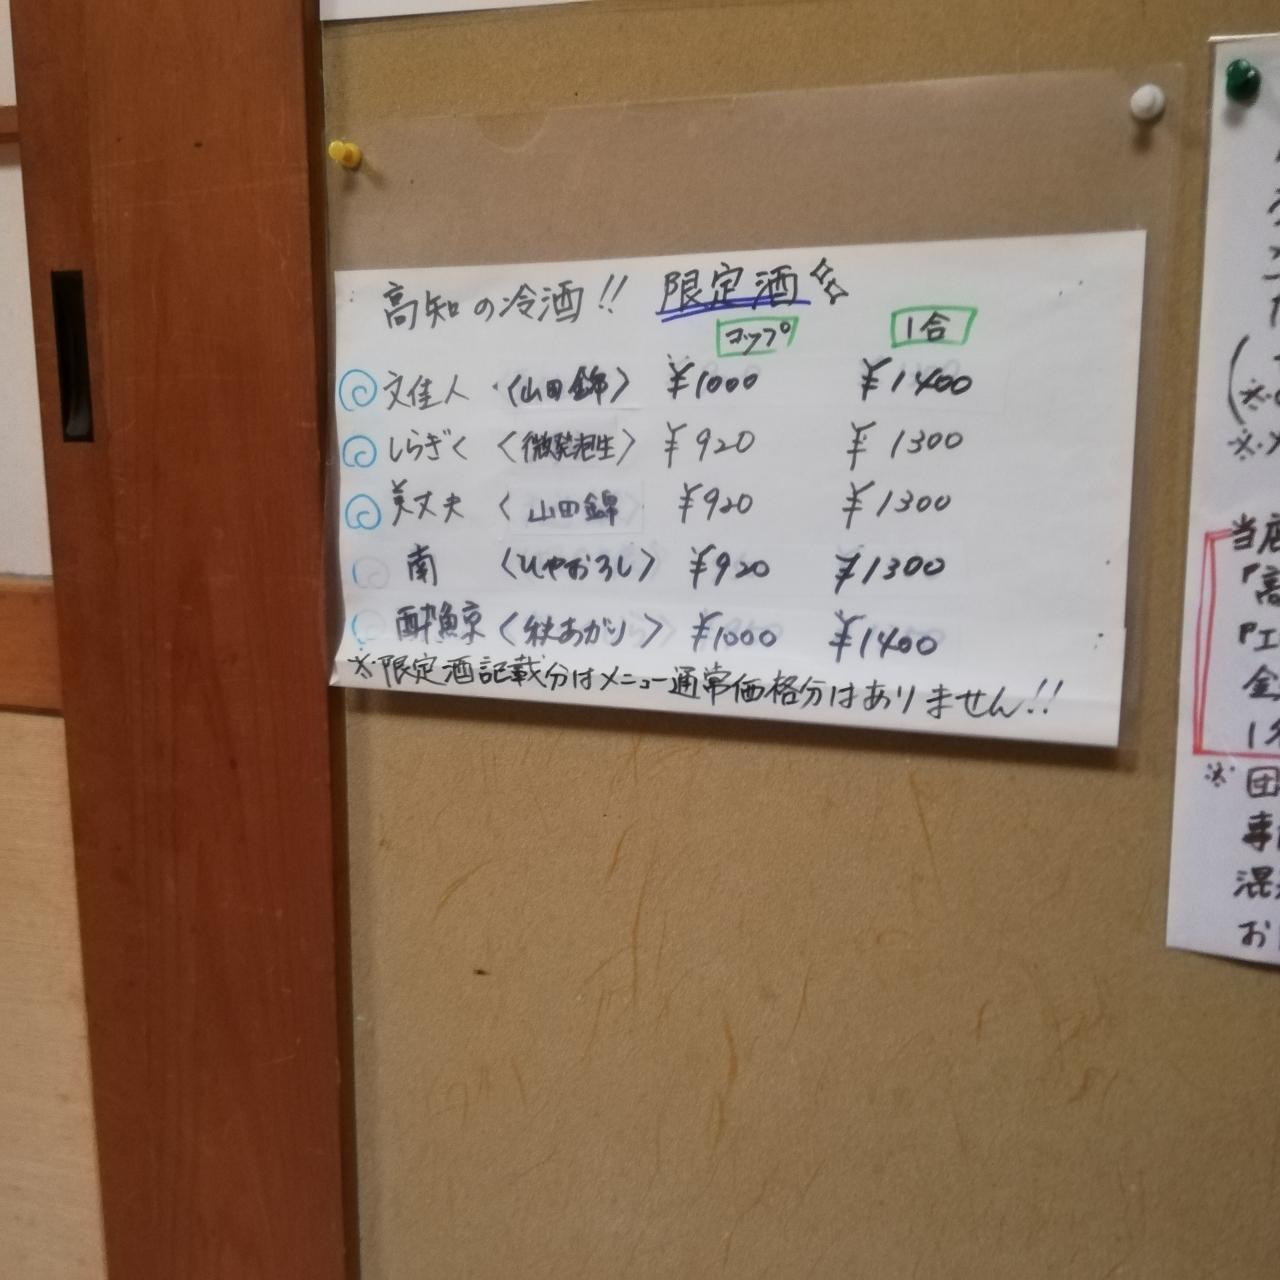 高知の冷酒!! 限定酒
コップ 1合
文佳人 〈山田錦〉 ¥1000 ¥1400
しらぎく 〈微発泡生〉 ¥920 ¥1300
美丈夫 〈山田錦 ¥920 ¥1300
南 〈ひやおろし〉 ¥920 ¥1300
酔鯨 〈秋あがり〉 ¥1000 ¥1400
※限定酒記載分はメニュー通常価格分はありません!!
当店
『高
『エ
金
1名
※団
専
混
お